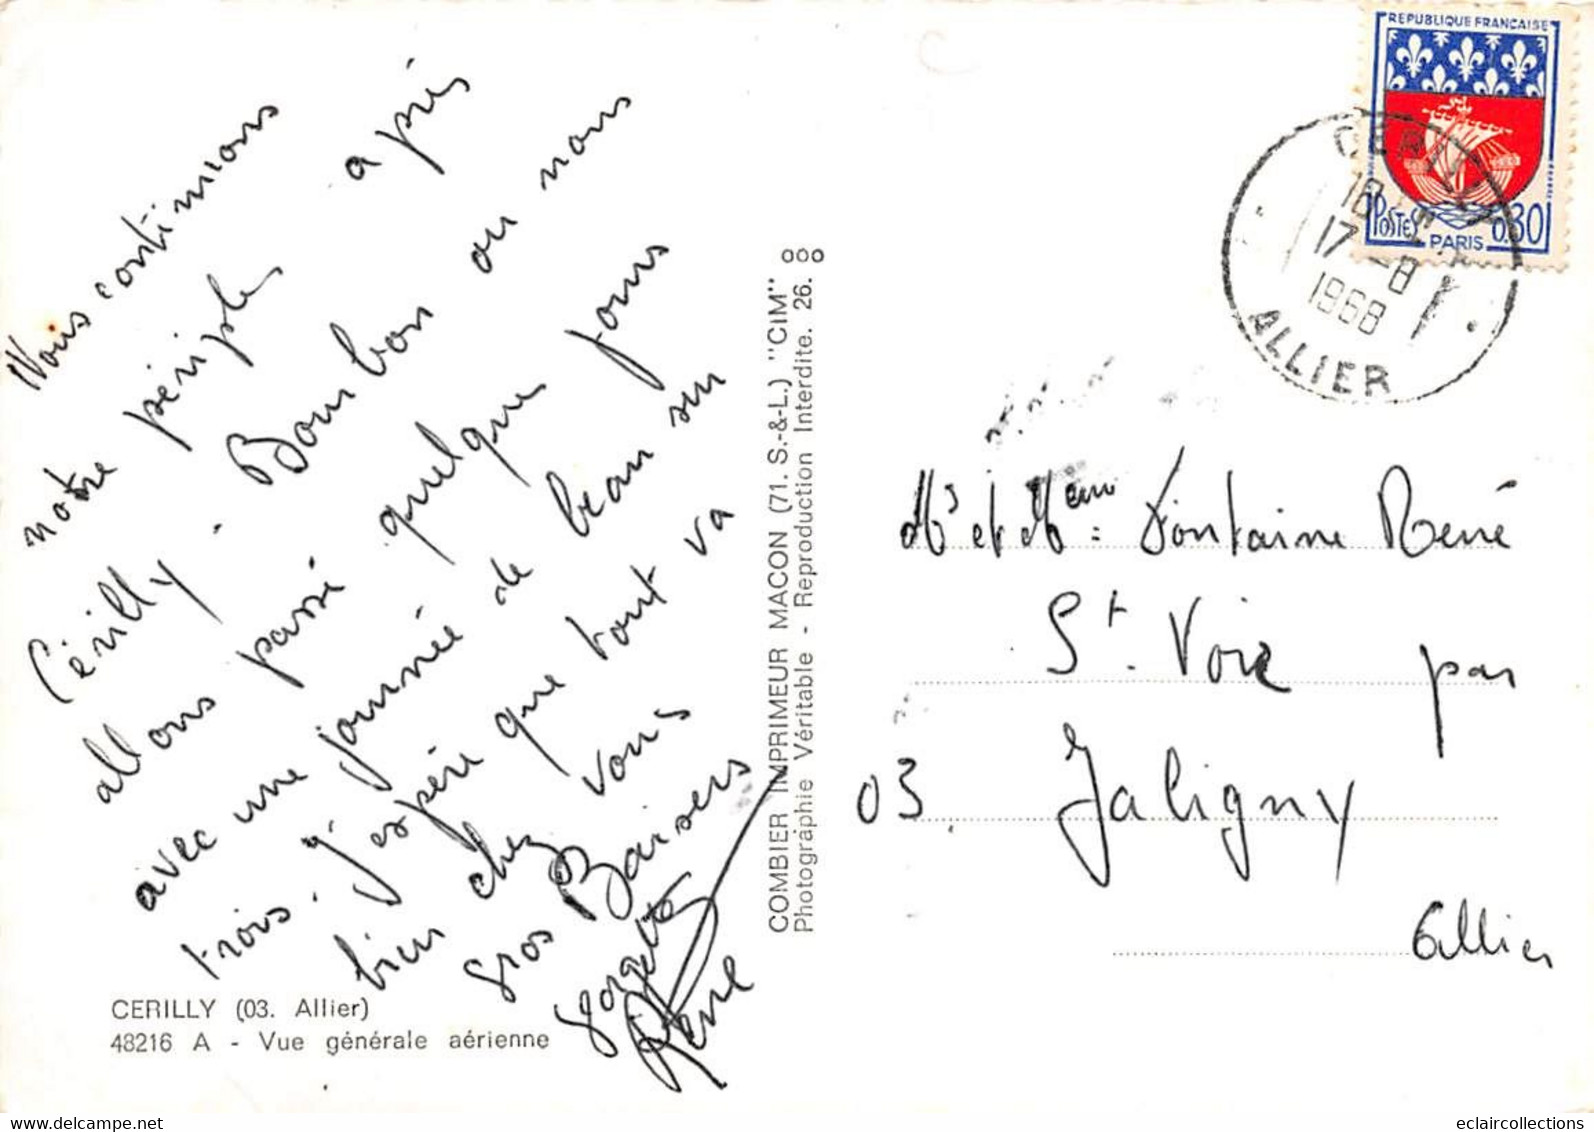 Nous continuons
notre périple après
Cérilly - Bourbon ou nous
allons passé quelque jours
avec une journée de beau sur
trois. J'espère que tout va
bien chez vous
gros Baisers
Georgette
René
CERILLY (03. Allier)
48216 A - Vue générale aérienne
COMBIER IMPRIMEUR MACON (71. S.-&-L.) "CIM"
Photographie Véritable - Reproduction Interdite. 26.
REPUBLIQUE FRANÇAISE
POSTES 0,30
PARIS
CERILLY
18
17 -8
1968
ALLIER
Mr et Mme : Fontaine René
St. Voir par
03. Jaligny
Allier
eclaircollections